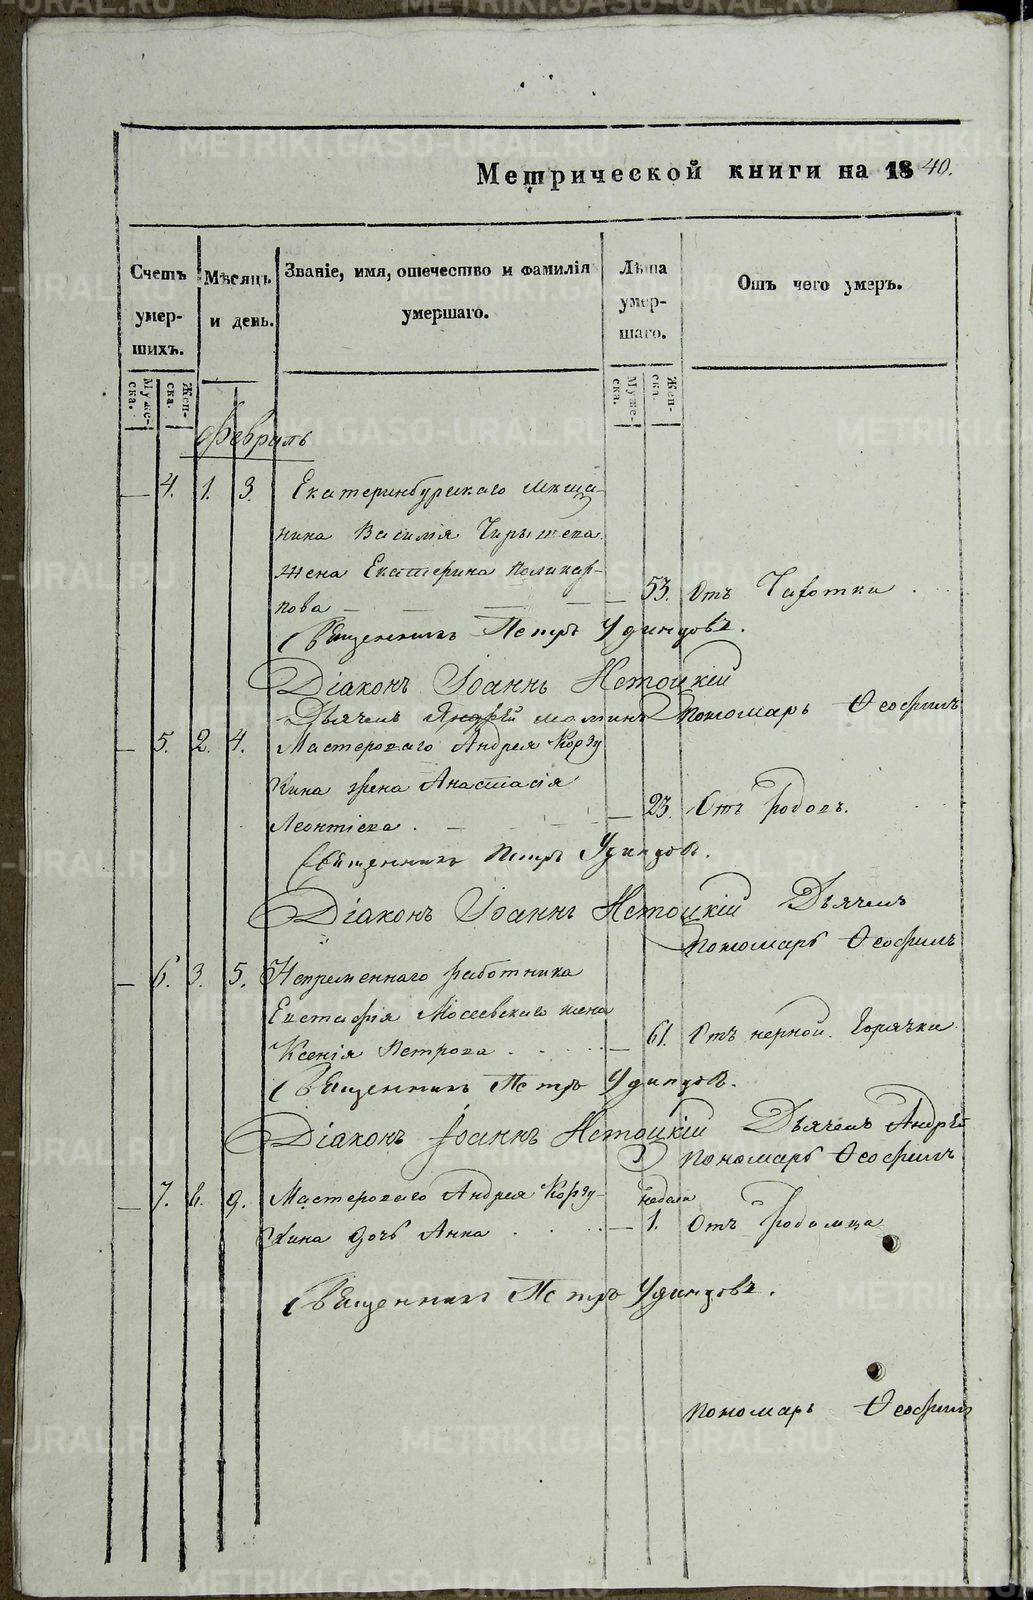 Метрической книги на 1840.
Счетъ умер- шихъ.
Мѣсяцъ и день.
Званіе, имя, отечество и фамилія умершаго.
Лѣта умер- шаго.
Отъ чего умеръ.
Муже- ска.
Жен- ска.
Муже- ска.
Жен- ска.
Февраль
4. 1. 3. Екатеринбургскаго мѣща-
нина Василія
жена Екатерина Поликар-
пова 53. Отъ Чахотки
Священникъ Петръ Удинцовъ.
Діаконъ Іоаннъ
Дьячекъ Андрей Пономарь Ѳеофилъ
5. 2. 4. Мастероваго Андрея Корзу
хина жена Анастасія
Леонтіева. 23. Отъ родовъ.
Священникъ Петръ Удинцовъ.
Діаконъ Іоаннъ Дьячекъ
Пономарь Ѳеофилъ
6. 3. 5. Непременнаго работника
Евстафія Мосеевскаго жена
Ксенія Петрова 61. Отъ нервной Горячки.
Священникъ Петръ Удинцовъ.
Діаконъ Іоаннъ Дьячекъ Андрей
Пономарь Ѳеофилъ
7. 6. 9. Мастероваго Андрея Корзу- недели
хина дочь Анна 1. Отъ Родимца
Священникъ Петръ Удинцовъ.
Пономарь Ѳеофилъ
METRIKI.GASO-URAL.RU